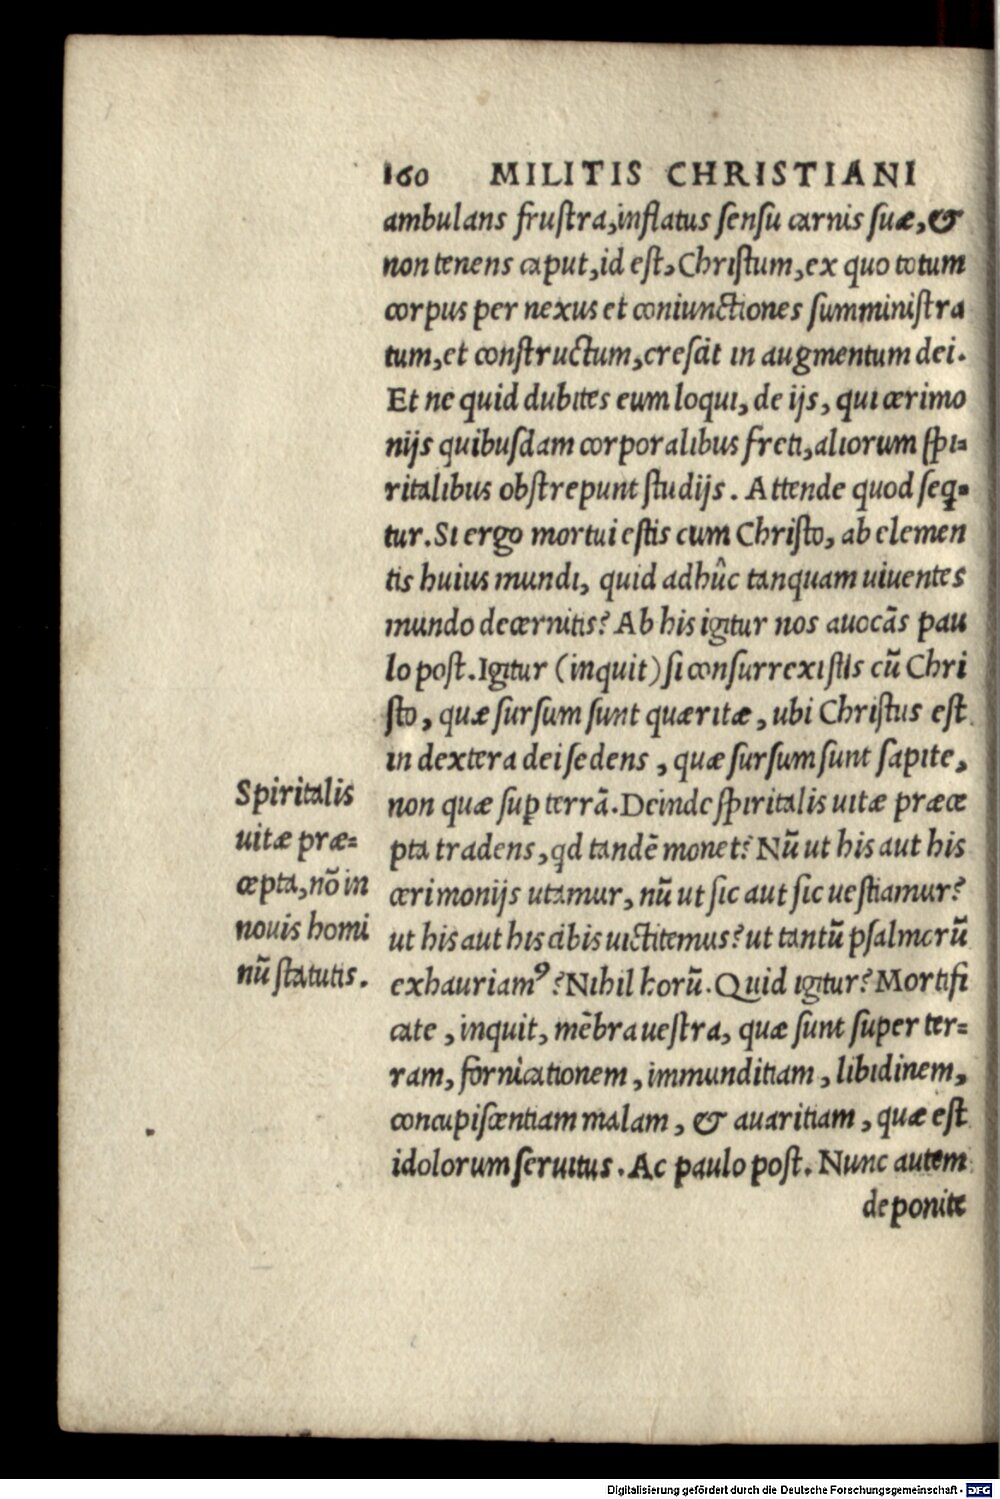 160 MILITIS CHRISTIANI
ambulans frustra, inflatus sensu carnis suæ, &
non tenens caput, id est, Christum, ex quo totum
corpus per nexus et coniunctiones sumministra
tum, et constructum, crescit in augmentum dei.
Et ne quid dubites eum loqui, de ijs, qui cerimo
nijs quibusdam corporalibus freti, aliorum spi-
ritalibus obstrepunt studijs. Attende quod seq̄-
tur. Si ergo mortui estis cum Christo, ab elemen
tis huius mundi, quid adhûc tanquam uiuentes
mundo decernitis? Ab his igitur nos auocãs pau
lo post. Igitur (inquit) si consurrexistis cũ Chri
sto, quæ sursum sunt quærite, ubi Christus est
in dextera dei sedens, quæ sursum sunt sapite,
non quæ suꝑ terrã. Deinde spiritalis uitæ præce
pta tradens, qd tandẽ monet? Nũ ut his aut his
cerimonijs utamur, nũ ut sic aut sic uestiamur?
ut his aut his cibis uictitemus? ut tantũ psalmorũ
exhauriamꝰ? Nihil horũ. Quid igitur? Mortifi
cate, inquit, mẽbra uestra, quæ sunt super ter-
ram, fornicationem, immunditiam, libidinem,
concupiscentiam malam, & auaritiam, quæ est
idolorum seruitus. Ac paulo post. Nunc autem
deponite
Spiritalis
uitæ præ-
cepta, nõ in
nouis homi
nũ statutis.
Digitalisierung gefördert durch die Deutsche Forschungsgemeinschaft - DFG